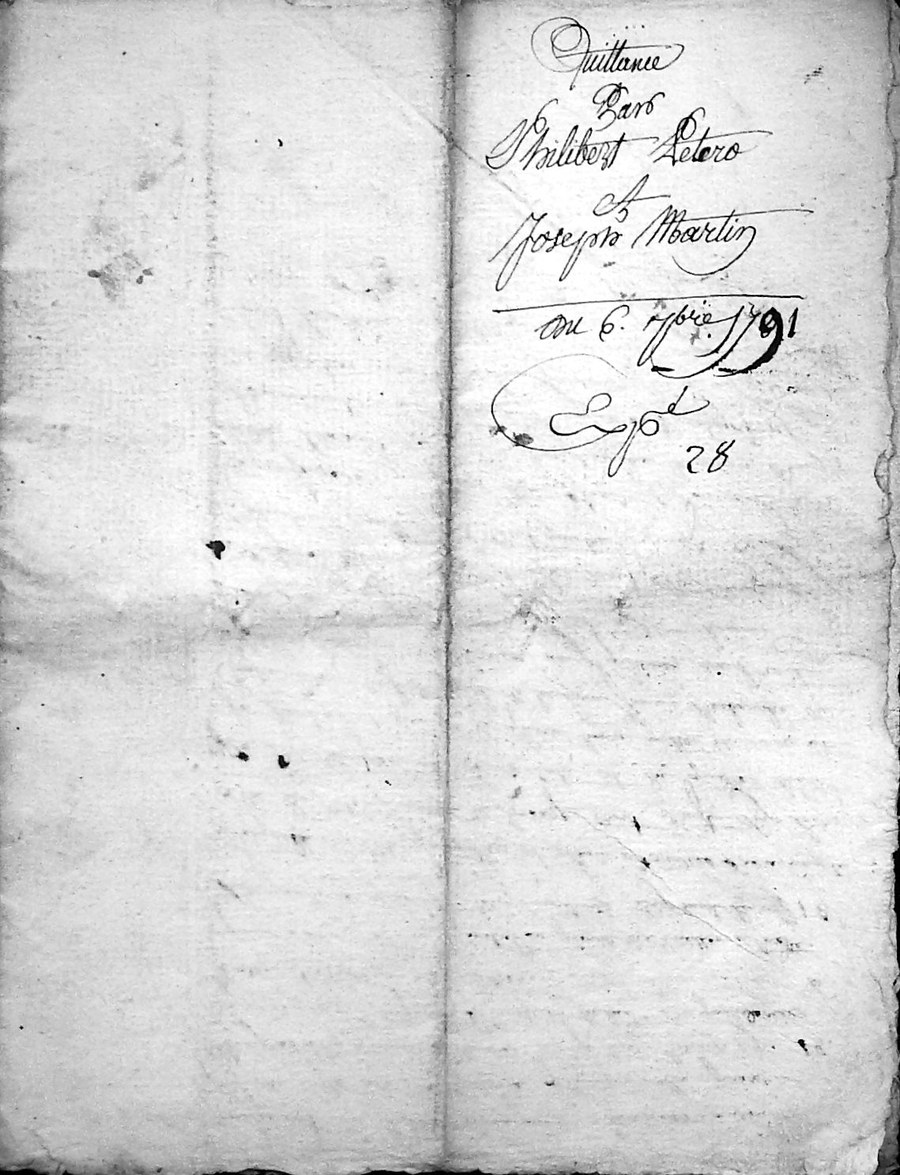 Quittance
Par
Philibert Peters
A
Joseph Martin
du 6. 7bre. 1791
Expd
28